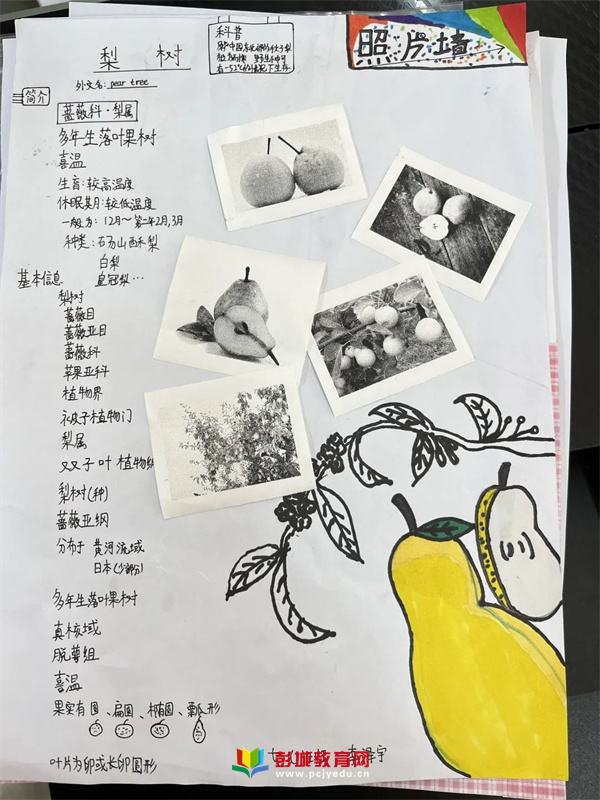 梨 树
外文名: pear tree
科普
照片墙
简介
蔷薇科·梨属
多年生落叶果树
喜温
生育:较高温度
休眠期:较低温度
一般为: 12月~第二年2月,3月
种类:石砀山酥梨
白梨
皇冠梨…
基本信息
梨树
蔷薇目
蔷薇亚目
蔷薇科
苹果亚科
植物界
被子植物门
梨属
双子叶植物纲
梨树(种)
蔷薇亚纲
分布于 黄河流域
日本(少部分)
多年生落叶果树
真核域
脱萼组
喜温
果实有圆、扁圆、椭圆、瓢形
叶片为卵或长卵圆形
彭城教育网
www.pcjyedu.cn